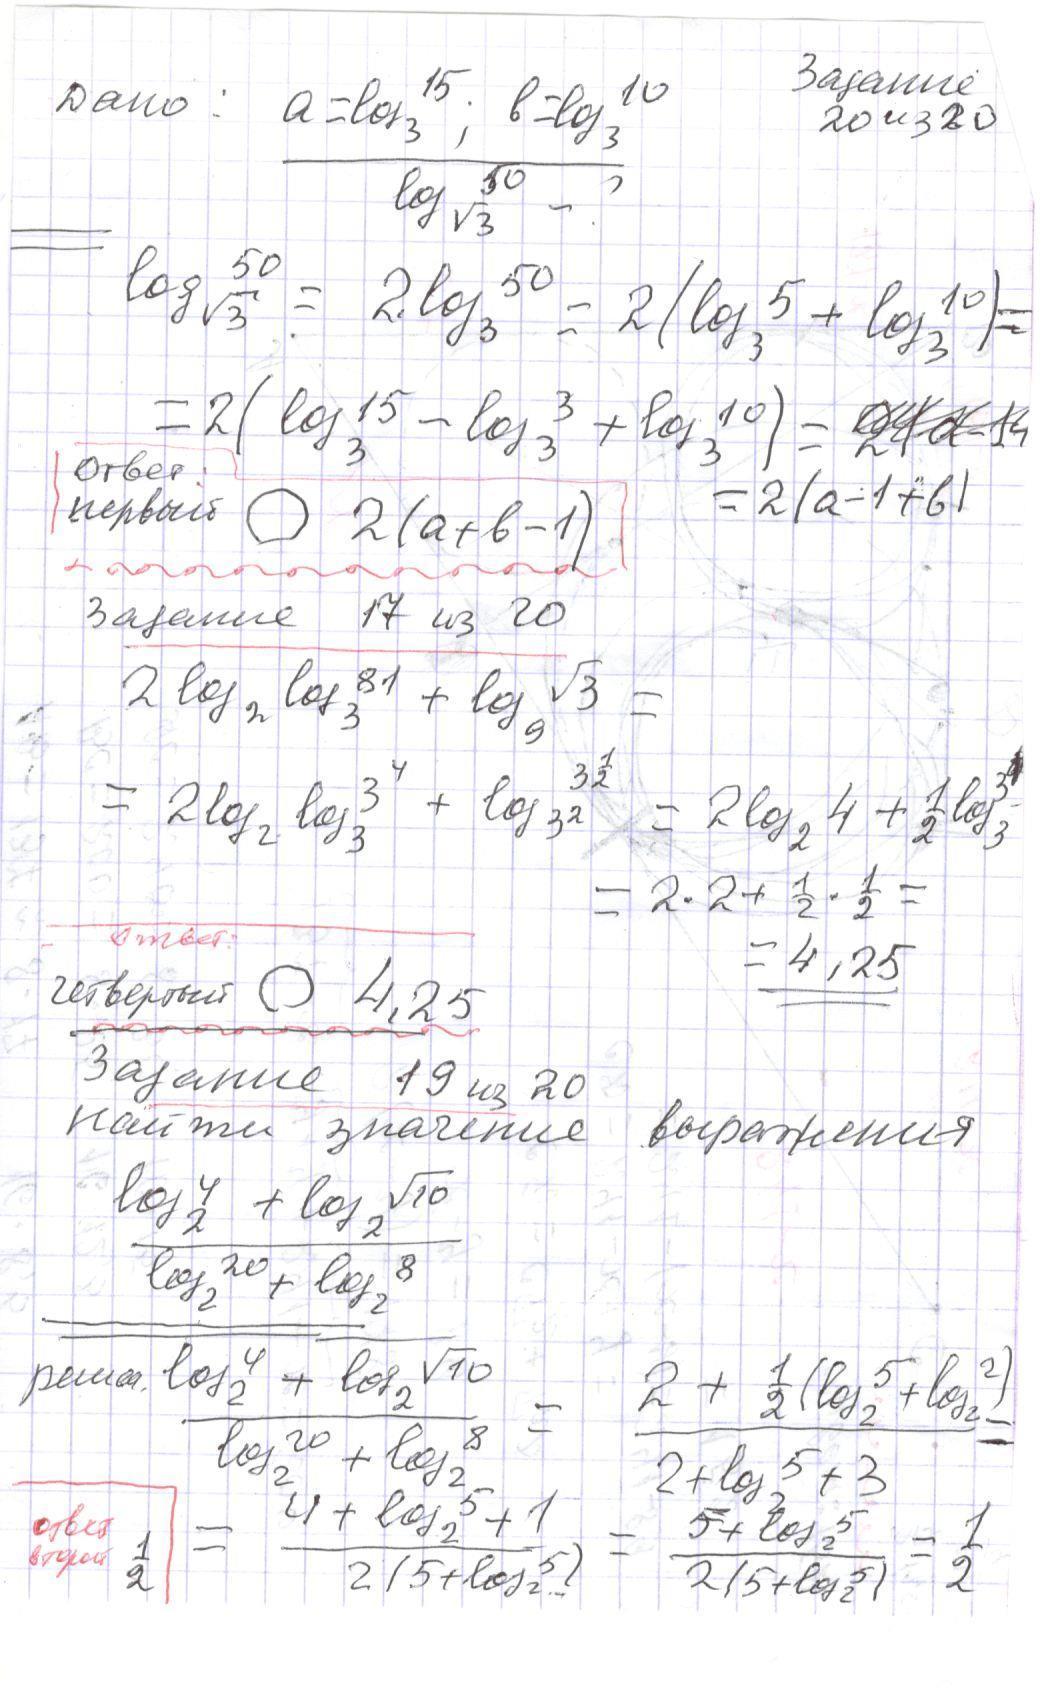 Задание
20 из 20
Дано: a=log₃15; b=log₃10
log_√3 50 - ?
log_√3 50 = 2·log₃50 = 2(log₃5 + log₃10)=
=2(log₃15 - log₃3 + log₃10) =
=2(a-1+b)
ответ:
первый ○ 2(a+b-1)
Задание 17 из 20
2log₂log₃81 + log₉√3 =
= 2log₂log₃3⁴ + log_3² 3^½ = 2log₂4 + ½log₃3
= 2·2 + ½·½ =
= 4,25
ответ:
четвертый ○ 4,25
Задание 19 из 20
найти значение выражения
log₂4 + log₂√10
log₂20 + log₂8
решен. log₂4 + log₂√10 = 2 + ½(log₂5 + log₂2) =
log₂20 + log₂8 2+log₂5+3
= 4 + log₂5 + 1 = 5 + log₂5 = ½
2(5+log₂5) 2(5+log₂5)
ответ
второй ½